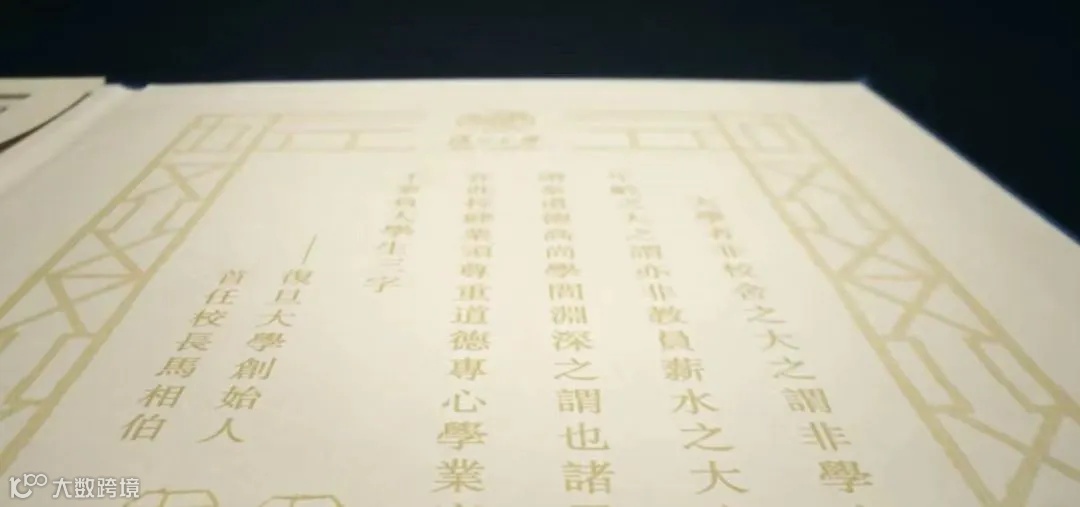 大學者非校舍之大之謂非學
年齡之大之謂亦非教員薪水之大
道德高尚學問淵深之謂也諸
在此校肄業須尊重道德專心學業
不辜負大學生三字
——復旦大學創始人
首任校長馬相伯
大数跨境